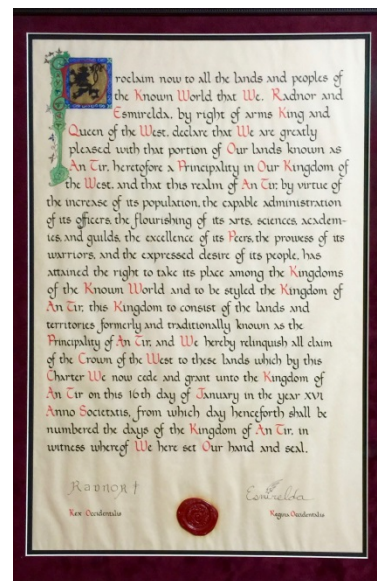 Proclaim now to all the lands and peoples of
the Known World that We, Radnor and
Esmirelda, by right of arms King and
Queen of the West, declare that We are greatly
pleased with that portion of Our lands known as
An Tir, heretofore a Principality in Our Kingdom of
the West, and that this realm of An Tir, by virtue of
the increase of its population, the capable administration
of its officers, the flourishing of its arts, sciences, academ-
ies, and guilds, the excellence of its Peers, the prowess of its
warriors, and the expressed desire of its people, has
attained the right to take its place among the Kingdoms
of the Known World and to be styled the Kingdom of
An Tir, this Kingdom to consist of the lands and
territories formerly and traditionally known as the
Principality of An Tir, and We hereby relinquish all claim
of the Crown of the West to these lands which by this
Charter We now cede and grant unto the Kingdom of
An Tir on this 16th day of January in the year XVI
Anno Societatis, from which day henceforth shall be
numbered the days of the Kingdom of An Tir, in
witness whereof We here set Our hand and seal.
RADNOR †
Esmirelda
Rex Occidentalis
Regina Occidentalis